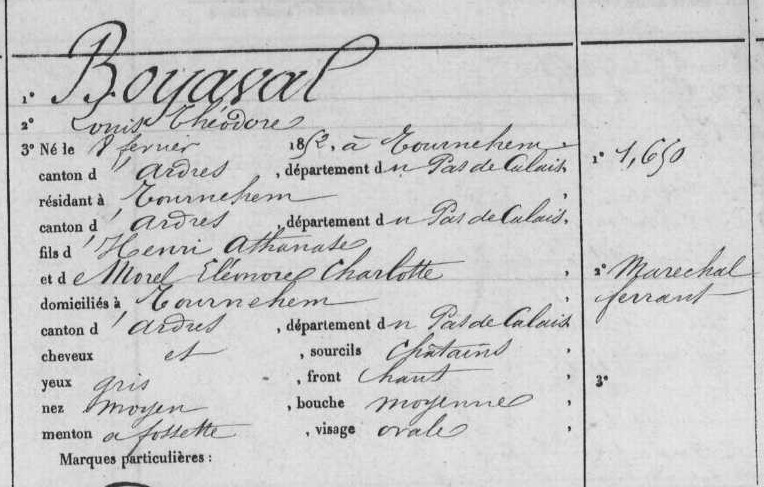 1° Boyaval
2° Louis Théodore
3° Né le 8 fevrier 1852, à Tournehem
canton d'Ardres, département du Pas de Calais, 1° 1,650
résidant à Tournehem,
canton d'Ardres, département du Pas de Calais,
fils d'Henri Athanase
et de Morel Eléonore Charlotte, 2° Marechal
domiciliés à Tournehem, ferrant
canton d'Ardres, département du Pas de Calais,
cheveux et, sourcils chatains,
yeux gris, front haut, 3°
nez moyen, bouche moyenne,
menton a fossette, visage ovale,
Marques particulières :